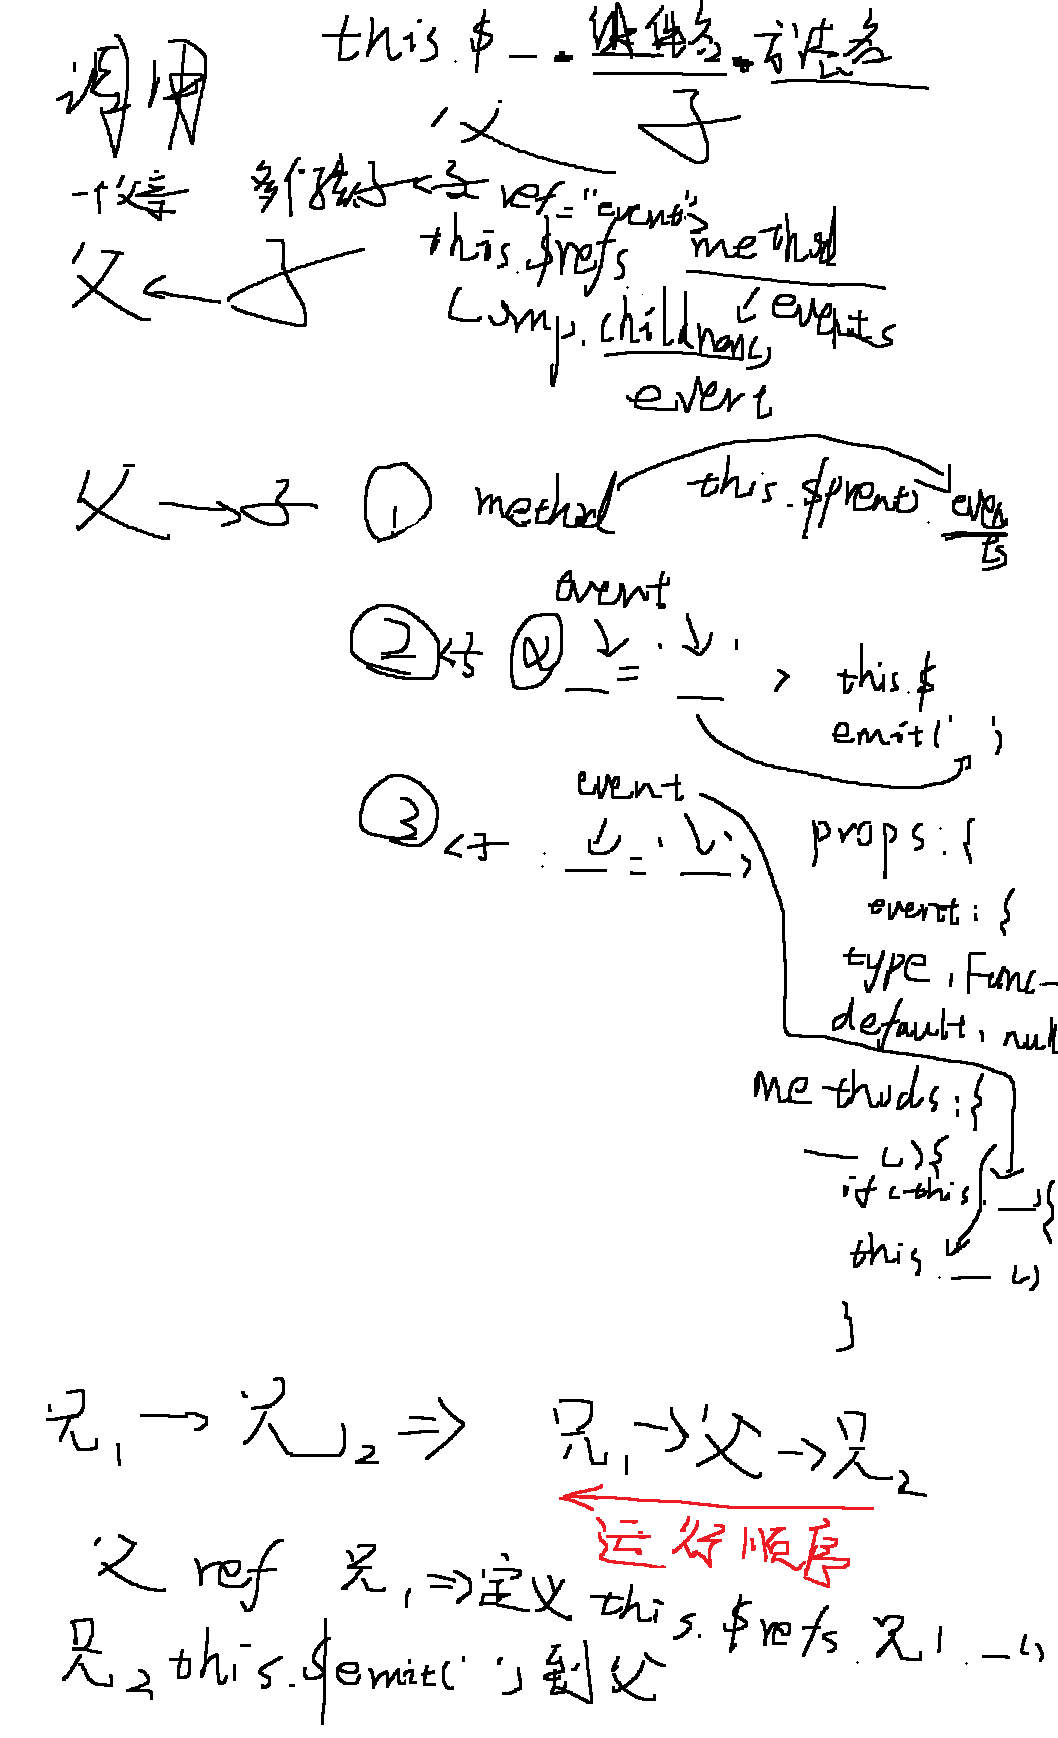 调用 this.$_.组件名.方法名
父 子
一个父亲 多个孩子 <子 ref="event">
父 ← 子 this.$refs. method
events
comp.children()
event
父 → 子 ① method this.$prent.events
event
② <子 @ _ = ' _ ' > this.$
emit(' ')
③ event
<子 : _ = ' _ ' > props:{
event:{
type, Func-
default, null
methods:{
_ () {
if (this._){
this._ ()
}
兄1 → 兄2 ⇒ 兄1 → 父 → 兄2
运行顺序
父 ref 兄1 ⇒ 定义 this.$refs.兄1._()
兄2 this.$emit(' ') 到父